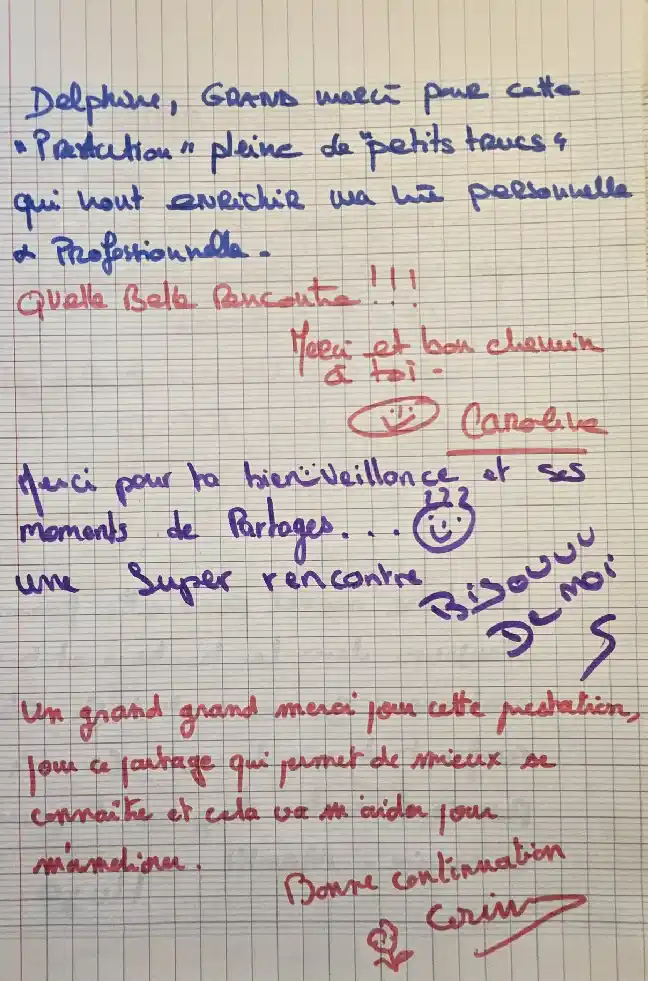 Delphine, GRAND merci pour cette
"Prestation" pleine de "petits trucs"
qui vont enRichiR ma vie personnelle
& Professionnelle.
Quelle Belle Rencontre !!!
Merci et bon chemin
à toi -
Caroline
Merci pour ta bienveillance et ses
moments de Partages...
une Super rencontre
Bisouuu
De moi
S
Un grand grand merci pour cette prestation,
pour ce partage qui permet de mieux se
connaître et cela va m'aider pour
m'améliorer.
Bonne continuation